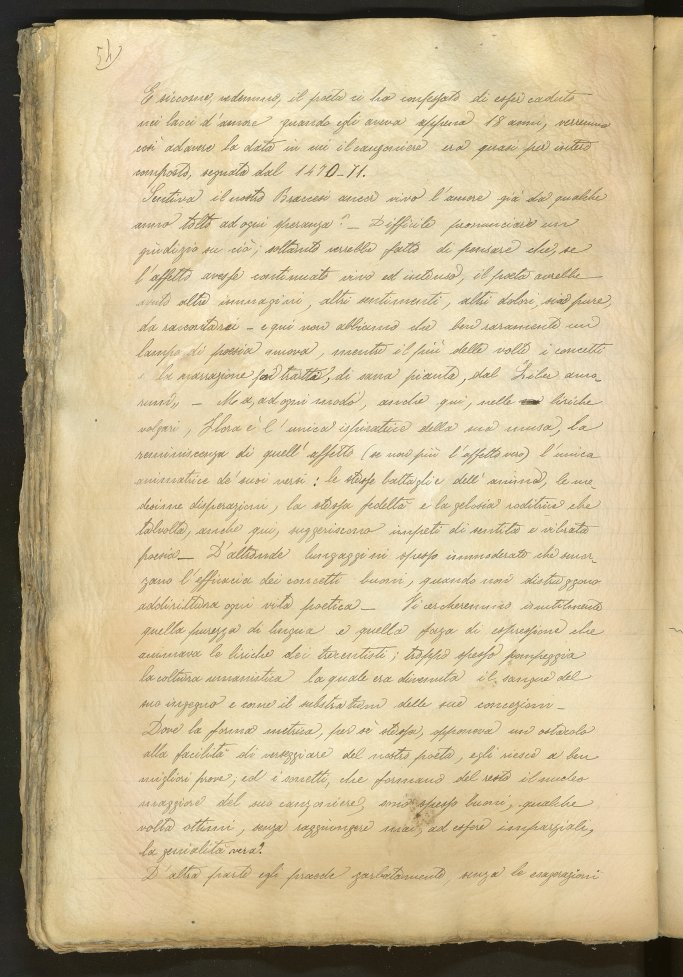 54)
E siccome, vedemmo, il poeta ci ha confessato di esser caduto
nei lacci d'amore quando egli aveva appena 18 anni, verremmo
così ad avere la data in cui il canzoniere era quasi per intero
composto, segnata dal 1470-71.
Sentiva il nostro Braccesi ancor vivo l'amore già da qualche
anno tolto ad ogni speranza? — Difficile pronunciare un
giudizio su ciò; soltanto verrebbe fatto di pensare che, se
l'affetto avesse continuato vivo ed intenso, il poeta avrebbe
avuto altre immagini, altri sentimenti, altri dolori, sia pure,
da raccontarci — e qui non abbiamo che ben raramente un
lampo di poesia nuova, mentre il più delle volte i concetti
e la narrazione son tratti, di sana pianta, dal Liber amo-
rum„ — Ma, ad ogni modo, anche qui, nelle liriche
volgari, Flora è l'unica ispiratrice della sua musa, la
reminiscenza di quell'affetto (se non più l'affetto vero) l'unica
animatrice de' suoi versi: le stesse battaglie dell'anima, le me-
desime disperazioni, la stessa fedeltà e la gelosia roditrice che
talvolta, anche qui, suggeriscono impeti di sentita e vibrata
poesia — D'altronde lungaggini spesso immoderate che smor-
zano l'efficacia dei concetti buoni, quando non distruggono
addirittura ogni vita poetica — Vi cercheremmo inutilmente
quella purezza di lingua e quella forza di espressione che
animava le liriche dei trecentisti; troppo spesso pompeggia
la coltura umanistica la quale era divenuta il sangue del
suo ingegno e come il substratum delle sue concezioni —
Dove la forma metrica, per sè stessa, opponeva un ostacolo
alla facilità di verseggiare del nostro poeta, egli riesce a ben
migliori prove; ed i sonetti, che formano del resto il nucleo
maggiore del suo canzoniere, sono spesso buoni, qualche
volta ottimi, senza raggiungere mai, ad essere imparziali,
la genialità vera.
D'altra parte egli procede garbatamente, senza le esagerazioni